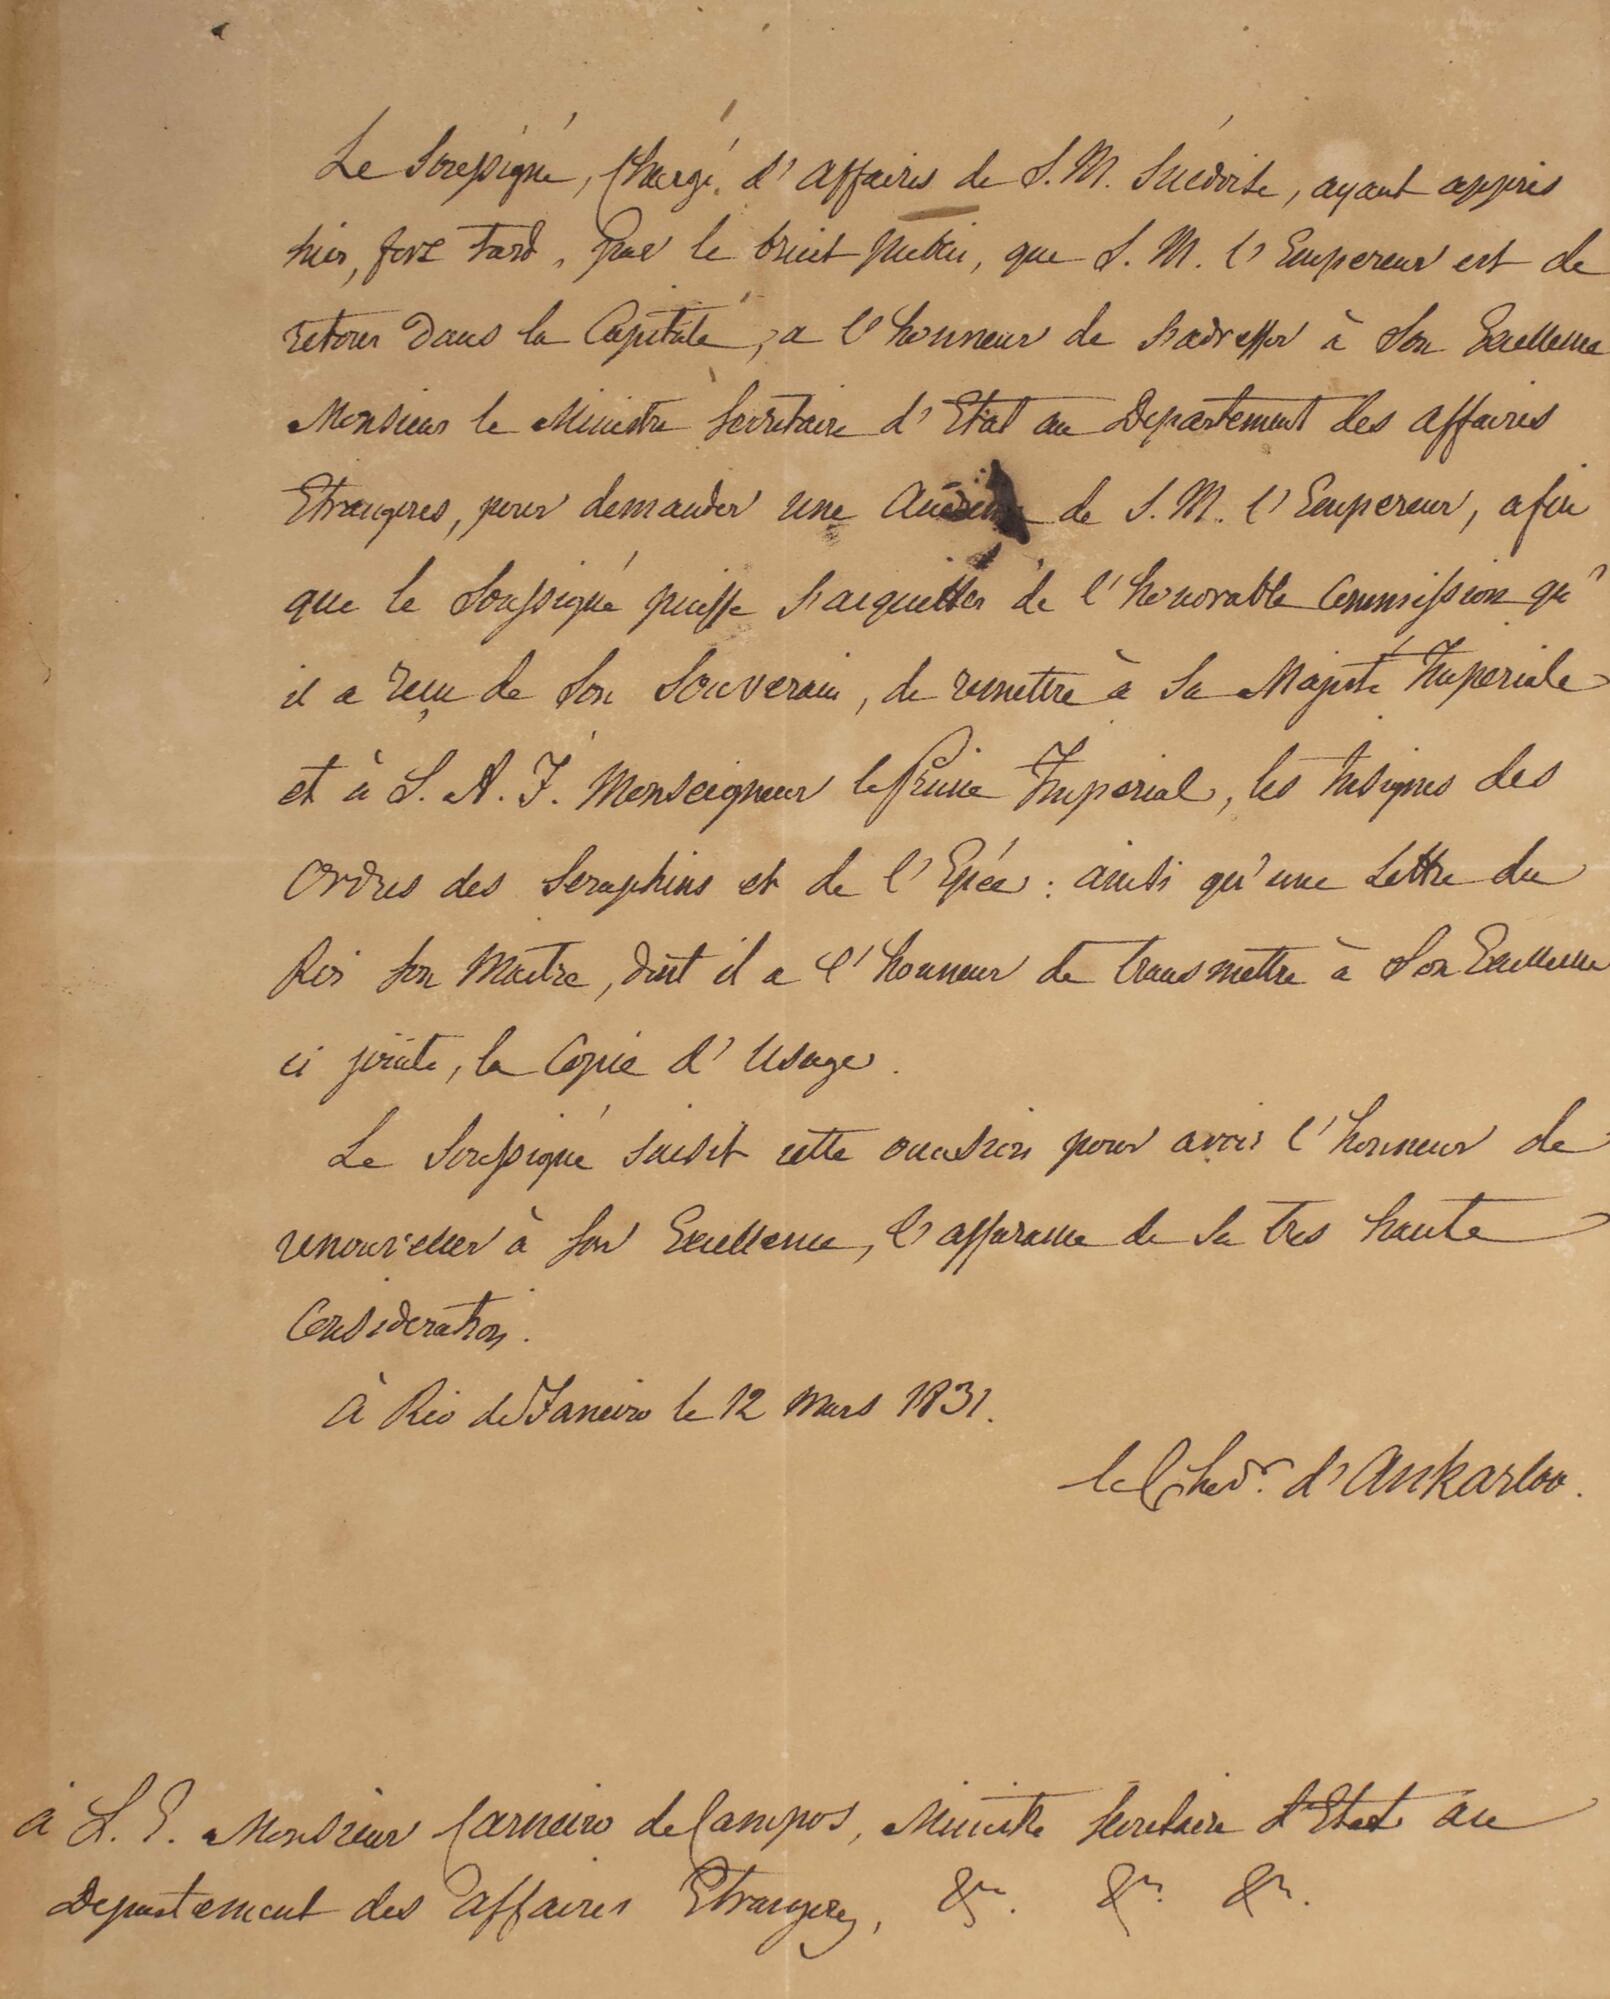 Le Soussigné, Chargé d'affaires de S. M. Suédoise, ayant appris
hier, fort tard, par le bruit public, que S. M. l'Empereur est de
retour dans la Capitale, a l'honneur de s'adresser à Son Excellence
Monsieur le Ministre Secretaire d'Etat au Departement des affaires
Etrangeres, pour demander une Audience de S. M. l'Empereur, afin
que le Soussigné puisse s'acquitter de l'honorable Commission qu'
il a reçu de Son Souverain, de remettre à Sa Majesté Imperiale
et à S. A. I. Monseigneur le Prince Imperial, les Insignes des
Ordres des Seraphins et de l'Epée: ainsi qu'une Lettre du
Roi Son Maitre, dont il a l'honneur de transmettre à Son Excellence
ci jointe, la Copie d'Usage.
Le Soussigné saisit cette occasion pour avoir l'honneur de
renouveller à Son Excellence, l'assurance de Sa tres haute
Consideration.
à Rio de Janeiro le 12 Mars 1831.
le Chevr. d'Ankarloo.
à S. E. Monsieur Carneiro de Campos, Ministre Secretaire d'Etat au
Departement des affaires Etrangeres, &c. &c. &c.